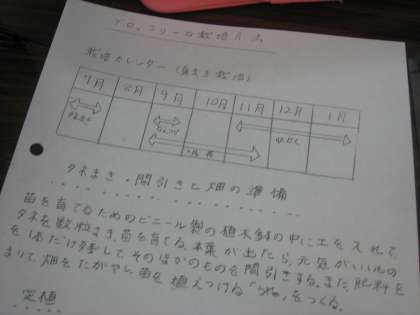 ブロッコリーの栽培方法
栽培カレンダー(夏まき栽培)
7月 8月 9月 10月 11月 12月 1月
タネまき
しゅうかく
タネまき・間引きと畑の準備
苗を育てるためのビニール製の植木鉢の中に土を入れて、
タネを数粒まき、苗を育てる。本葉が出たら、元気がいいもの
を1本だけ残して、そのほかのものを間引きする。また、肥料を
まいて、畑をたがやし、苗を植えつける「うね」をつくる。
定植